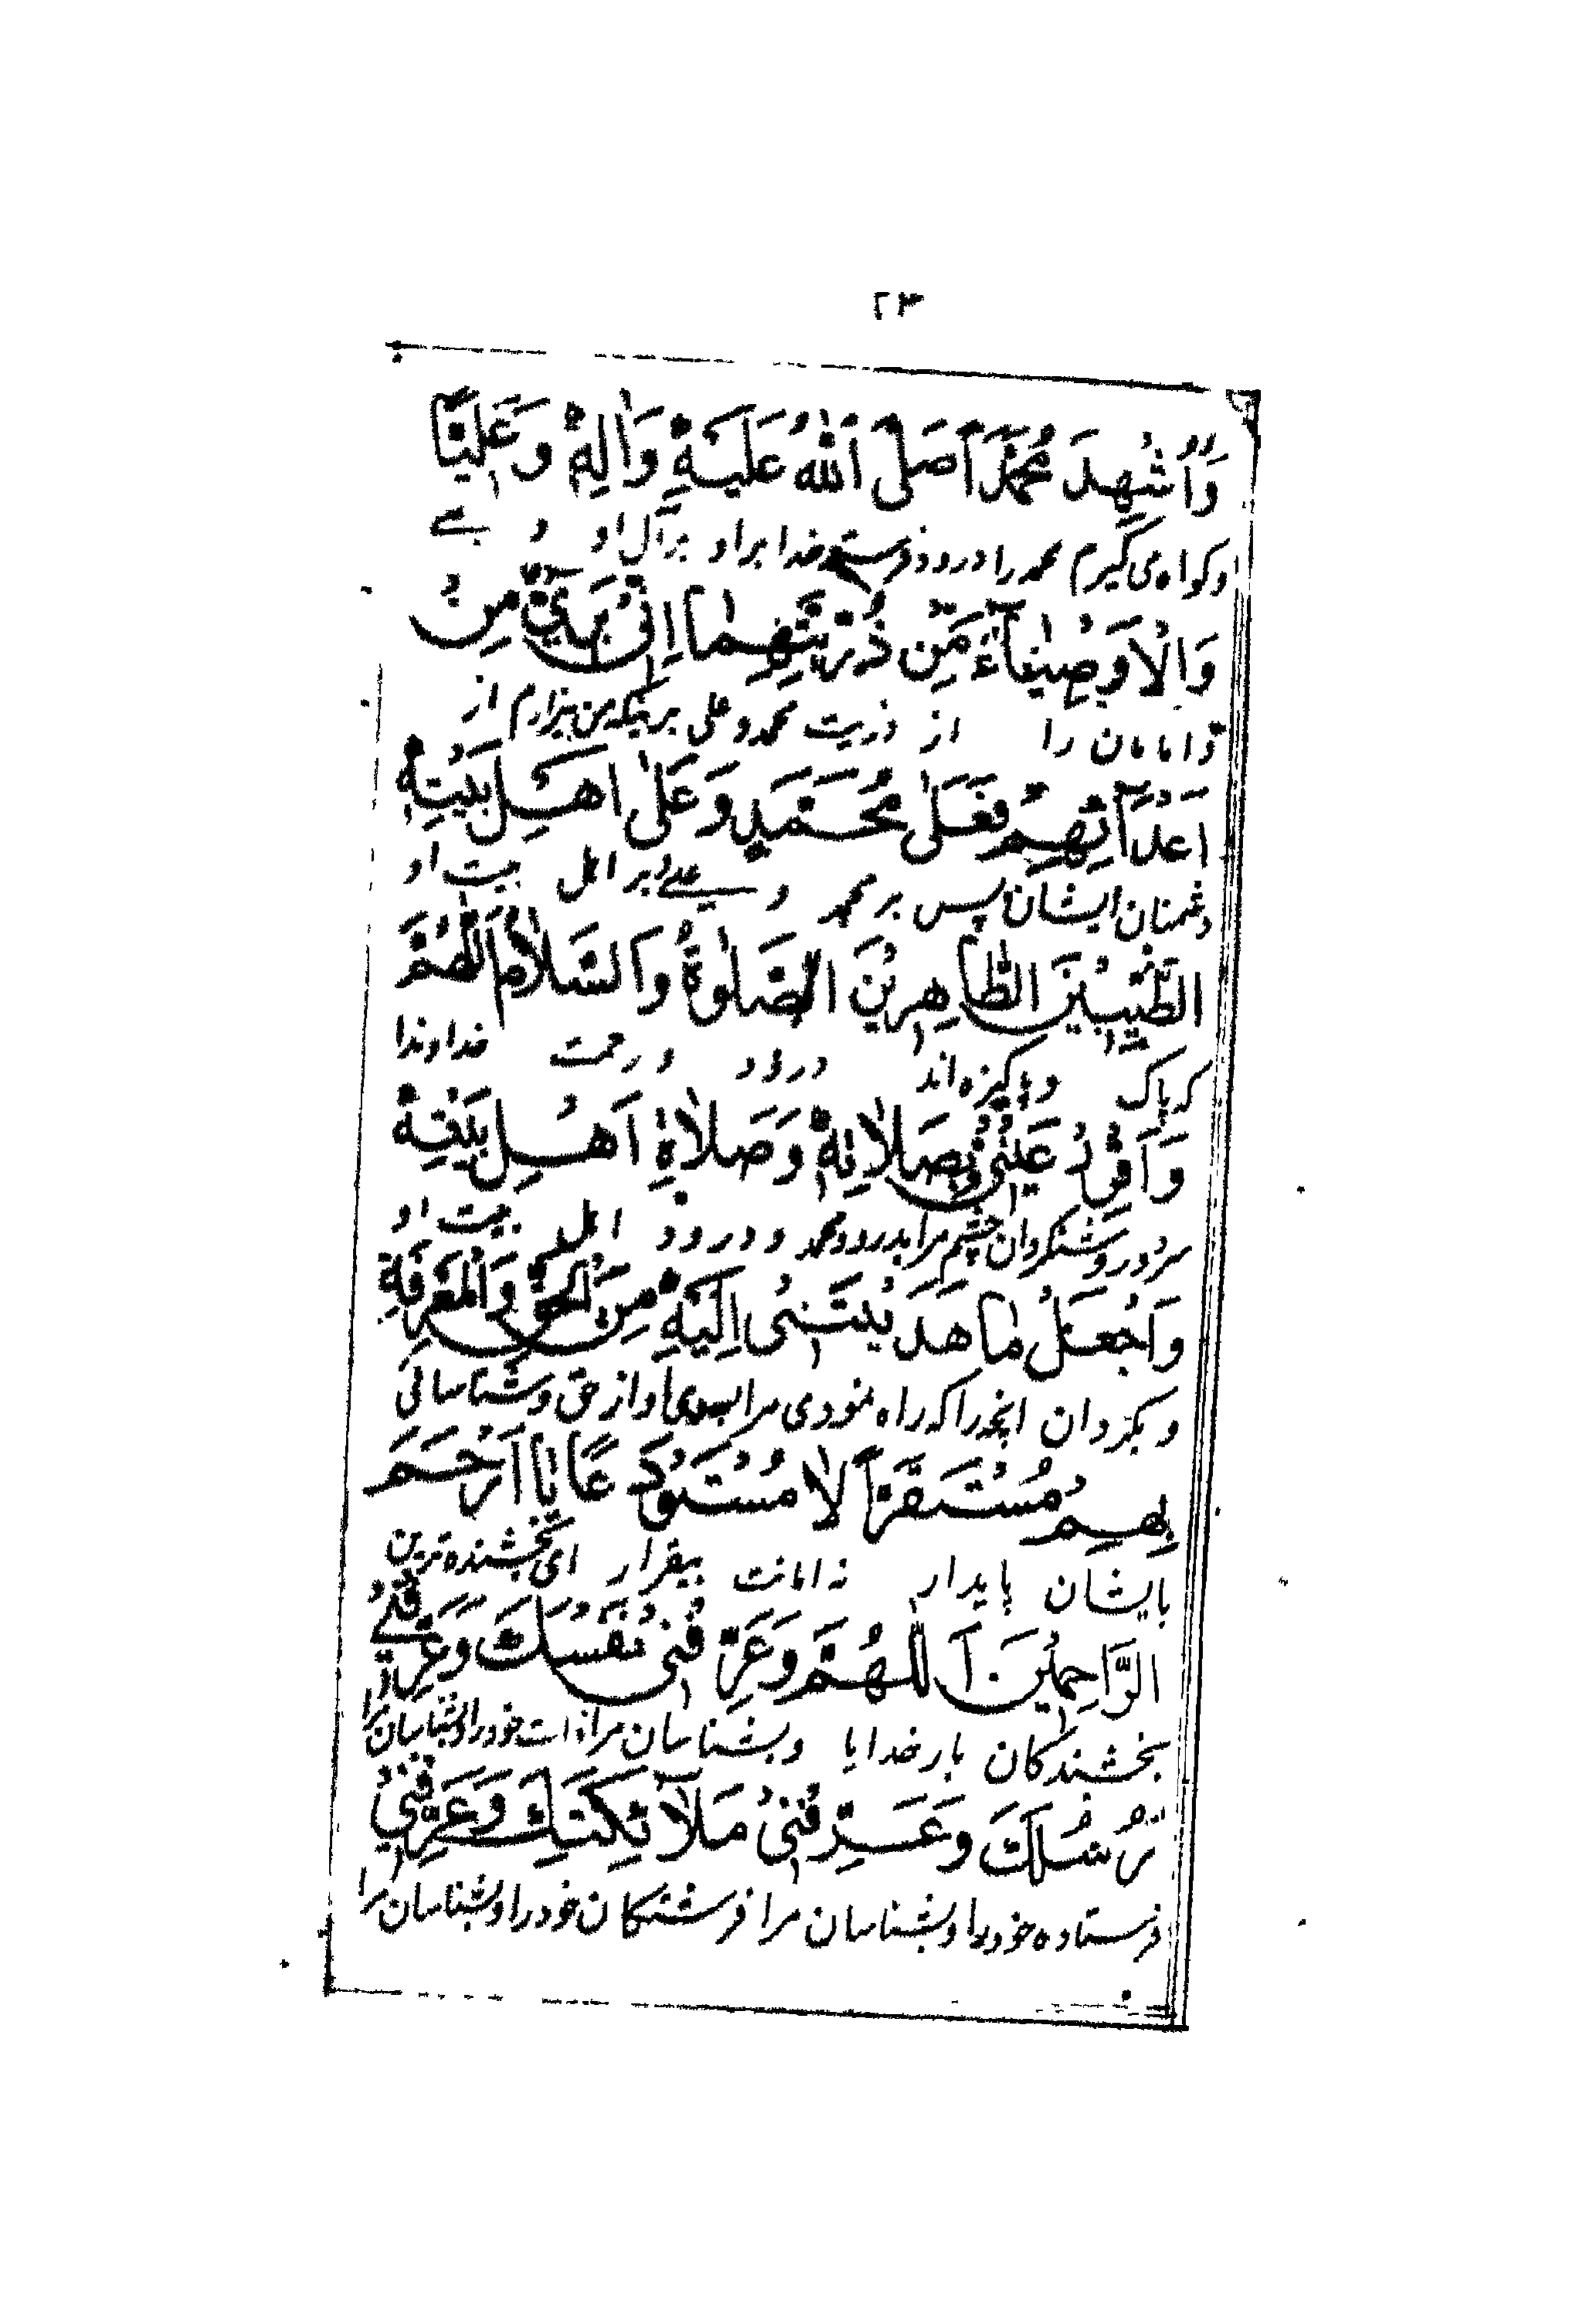 ٢٣
وَاُشْهِدُ مُحَمَّدًا صَلَّی اللهُ عَلَیْهِ وَاٰلِهٖ وَعَلِیًّا
وگواه می گیرم محمد را درود فرستد خدا بر او و بر آل او و علے
وَالْاَوْصِیٰٓاءَ مِنْ ذُرِّیَّتِهِمٰا اِنّی بَرِیٌٔ مِنْ
و امامان را از ذریت محمد و علی بر اینکه من بیزارم از
اَعْدٰٓائِهِمْ فَعَلٰی مُحَمَّدٍ وَعَلٰی اَهْلِ بَیْتِهِ
دشمنان ایشان پس بر محمد و علے و بر اهل بیت او
الطَّیِّبیْنَ الطّٰاهِریْنَ الصَّلٰوةُ وَالسَّلاٰمُ اَللّٰهُمَّ
که پاک و پاکیزه اند درود و رحمت خداوندا
وَاَقِرَّ عَیْنی بِصَلاٰتِهِ وَصَلاٰةِ اَهْلِ بَیْتِهِ
سرد و روشن گردان چشم مرا بدرود محمد و درود اهل بیت او
وَاجْعَلْ مٰا هَدَیْتَنی اِلَیْهِ مِنَ الْحَقِّ وَالْمَعْرِفَةِ
و بگردان آنچه را که راه نمودی مرا بسوی او از حق و شناسائی
بِهِمْ مُسْتَقَرًّا لاٰ مُسْتَوْدَعًا یٰا اَرْحَمَ
بایشان پایدار نه امانت بیقرار ای بخشنده ترین
الرّٰاحِمیْنَ اَللّٰهُمَّ وَعَرِّفْنی نَفْسَكَ وَعَرِّفْنی
بخشندگان بار خدایا و بشناسان مرا ذات خود را و بشناسان مرا
رُسُلَكَ وَعَرِّفْنی مَلآٰئِكَتَكَ وَعَرِّفْنی
فرستاده خود را و بشناسان مرا فرشتگان خود را و بشناسان مرا